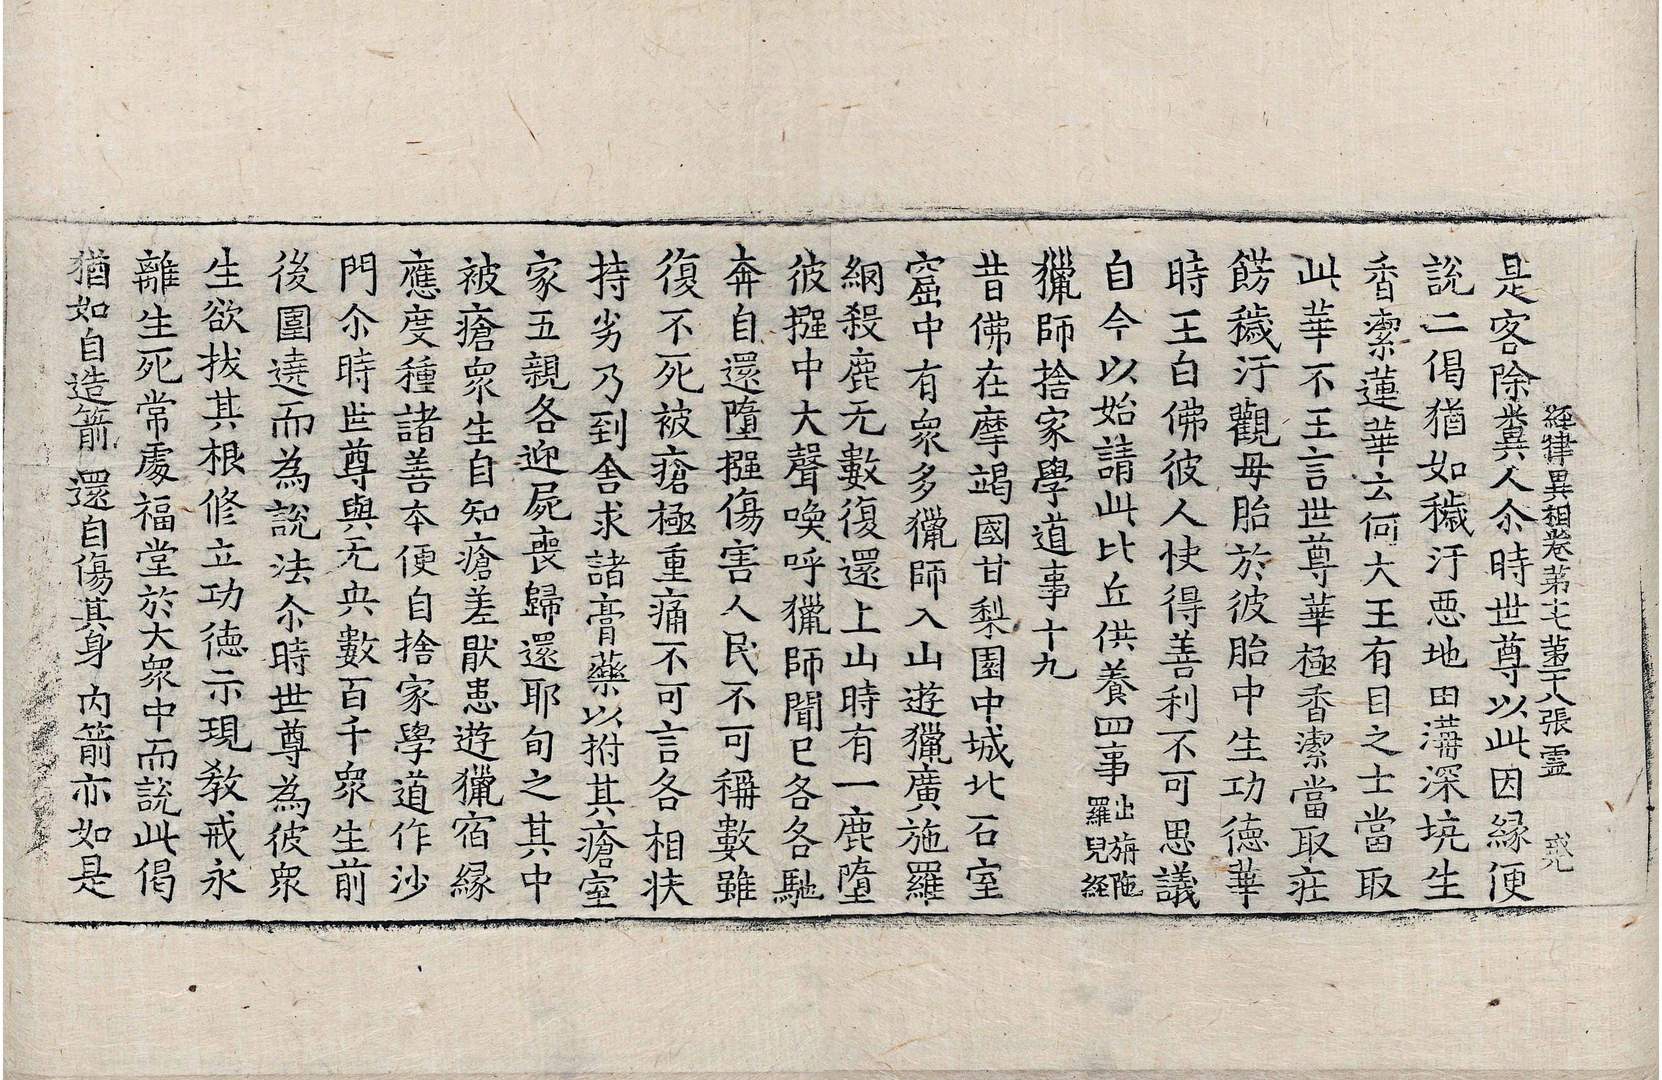 經律異相卷第十七 第十八張 靈
是客除糞人尒時世尊以此因緣便
說二偈猶如穢汙惡地田溝深坑生
香潔蓮華云何大王有目之士當取
此華不王言世尊華極香潔當取莊
餝穢汙觀母胎於彼胎中生功德華
時王白佛彼人快得善利不可思議
自今以始請此比丘供養四事出旃陁羅兒經
獵師捨家學道事十九
昔佛在摩竭國甘梨園中城北石室
窟中有衆多獵師入山遊獵廣施羅
網殺鹿无數復還上山時有一鹿墮
彼摾中大聲喚呼獵師聞已各各馳
奔自還墮摾傷害人民不可稱數雖
復不死被瘡極重痛不可言各相扶
持劣乃到舍求諸膏藥以拊其瘡室
家五親各迎屍喪歸還耶旬之其中
被瘡衆生自知瘡差猒患遊獵宿緣
應度種諸善本便自捨家學道作沙
門尒時世尊與无央數百千衆生前
後圍遶而為說法尒時世尊為彼衆
生欲拔其根修立功德示現教戒永
離生死常處福堂於大衆中而說此偈
猶如自造箭 還自傷其身 內箭亦如是